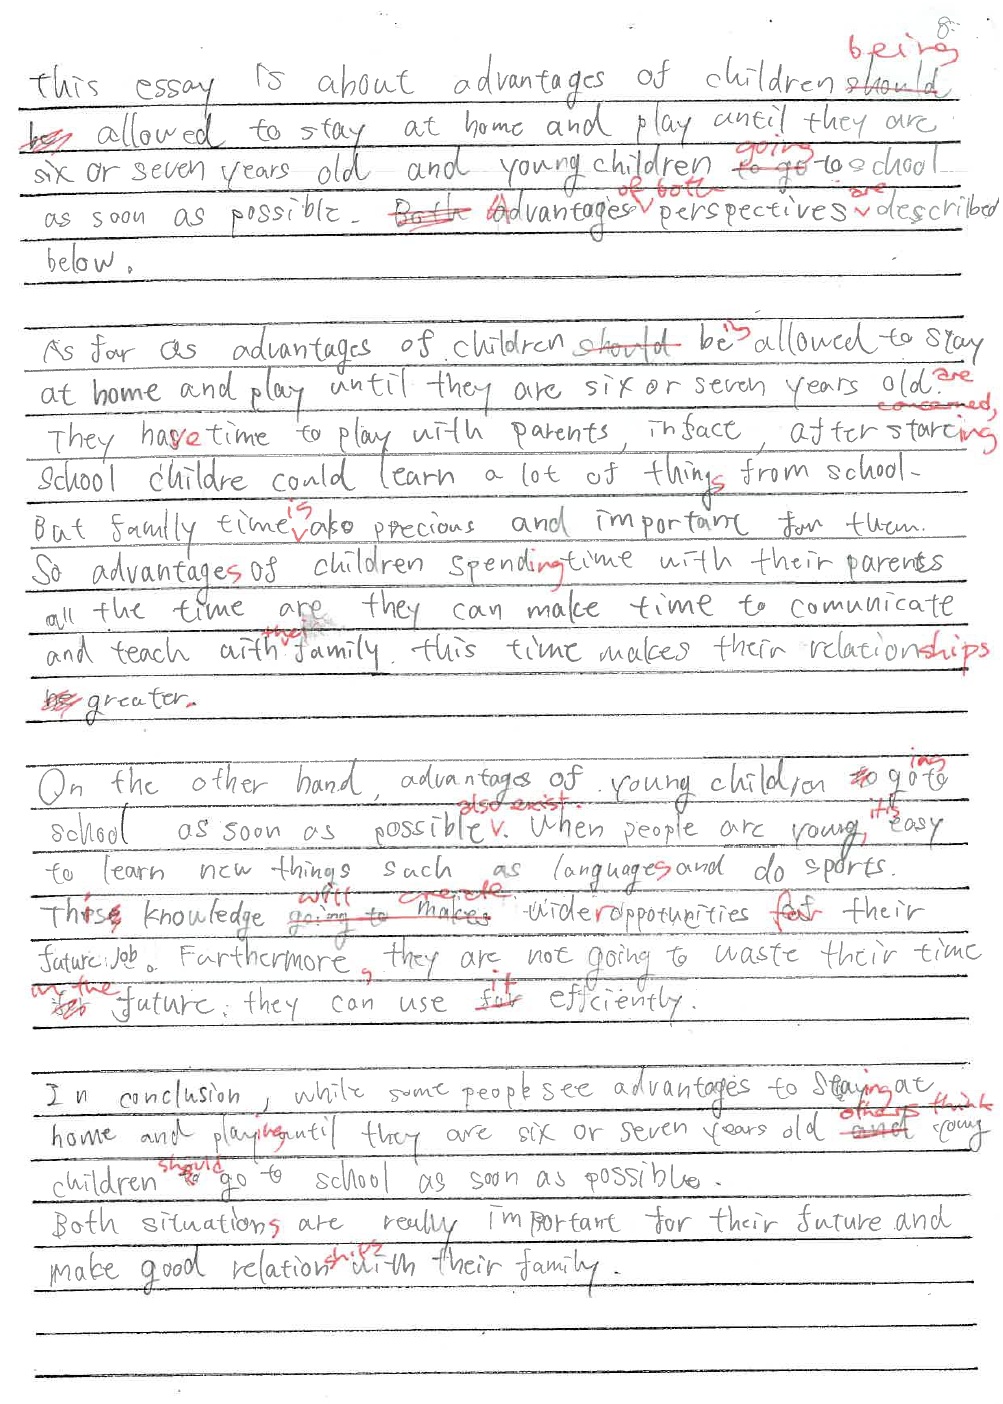 8.
being
this essay is about advantages of children should
be allowed to stay at home and play until they are
going
six or seven years old and young children to go to school
of both are
as soon as possible. Both Advantages perspectives described
below.
As far as advantages of children should being allowed to stay
at home and play until they are six or seven years old. are
concerned,
They have time to play with parents, infact, after starting
School childre could learn a lot of things from school.
is
But familly time also precious and important for them.
So advantages of children spending time with their parents
all the time are they can make time to comunicate
their
and teach with family. this time makes their relationships
be greater.
ing
On the other hand, advantages of young children to go to
also exist.
school as soon as possible. When people are young, it's easy
to learn new things such as languages and do sports.
will create
This knowledge going to makes wider oppotunities for their
future job. Furthermore, they are not going to waste their time
in the it
for future. they can use for efficiently.
In conclusion, while some people see advantages to staying at
others think
home and playing until they are six or seven years old and young
should
children to go to school as soon as possible.
Both situations are really important for their future and
ships
make good relation with their family.